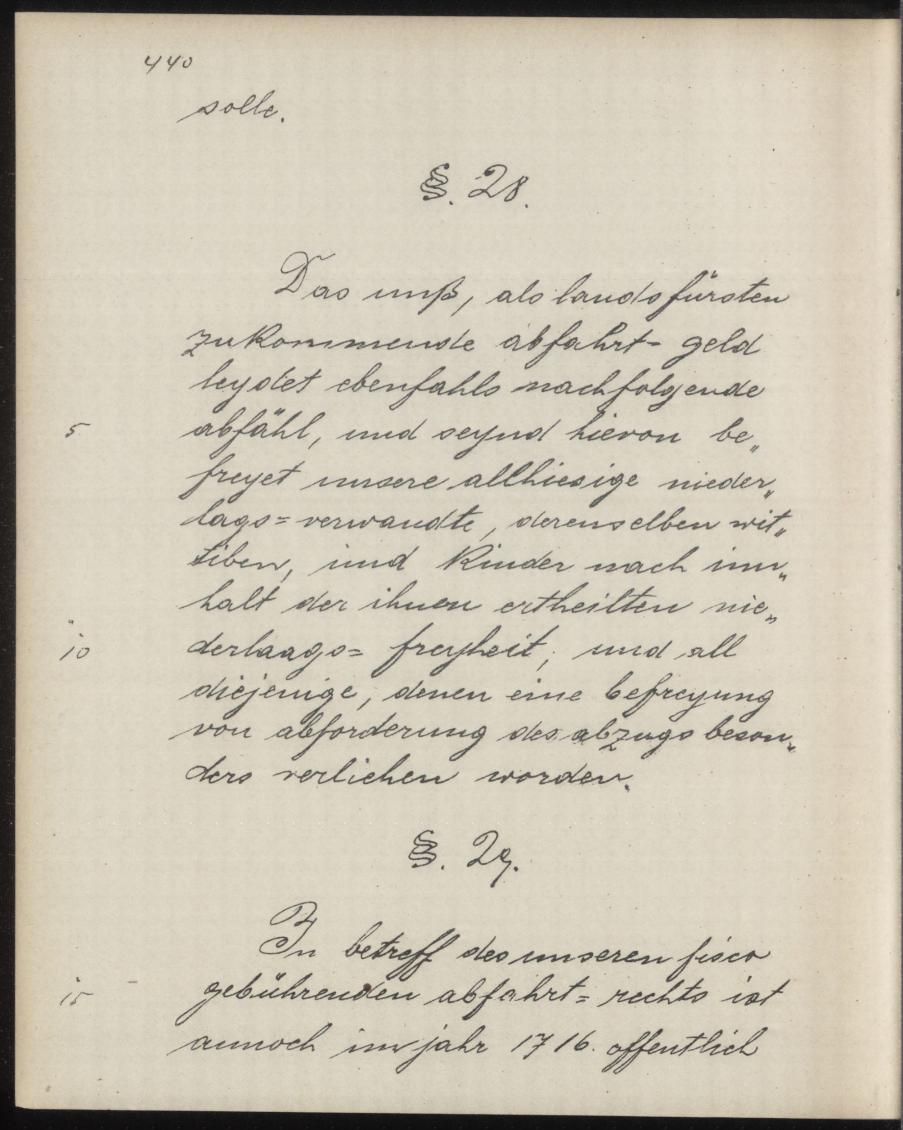 440
solle.
§. 28.
Das unß, als landsfürsten
zukommende abfahrt- geld
leydet ebenfahls nachfolgende
5 abfähl, und seynd hievon be„
freyet unsere allhiesige nieder„
lags=verwandte, derenselben wit„
tiben, und Kinder nach inn„
halt der ihnen ertheilten nie„
10 derlaags= freyheit, und all
diejenige, denen eine befreyung
von abforderung des abzugs beson„
ders verliehen worden.
§. 29.
In betreff des unseren fisco
15 gebührenden abfahrt= rechts ist
annoch im jahr 1716. offentlich